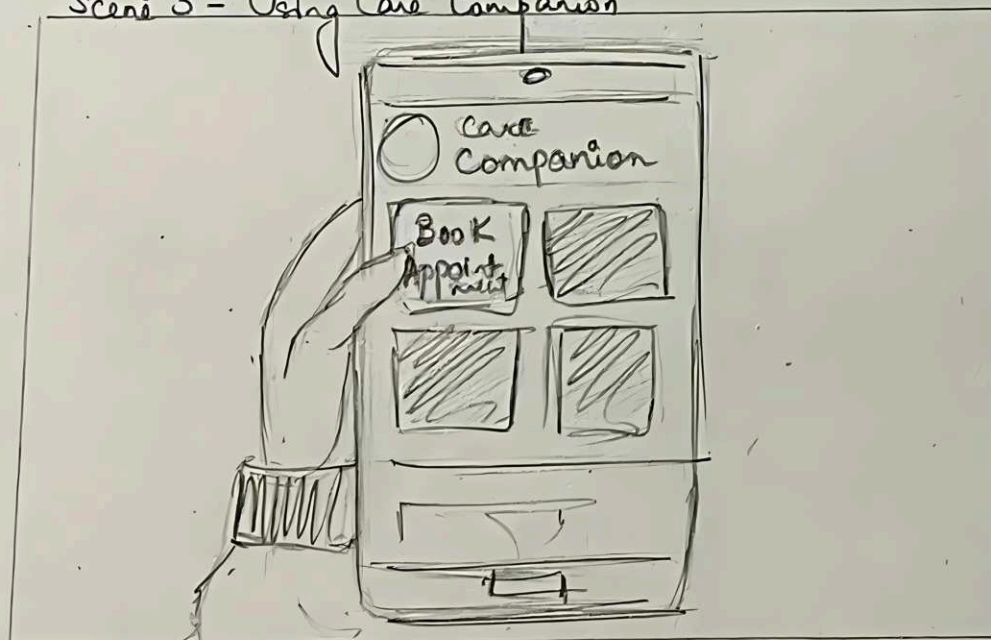 Scene 3 - Using Care Companion
Care
Companion
Book
Appoint
ment